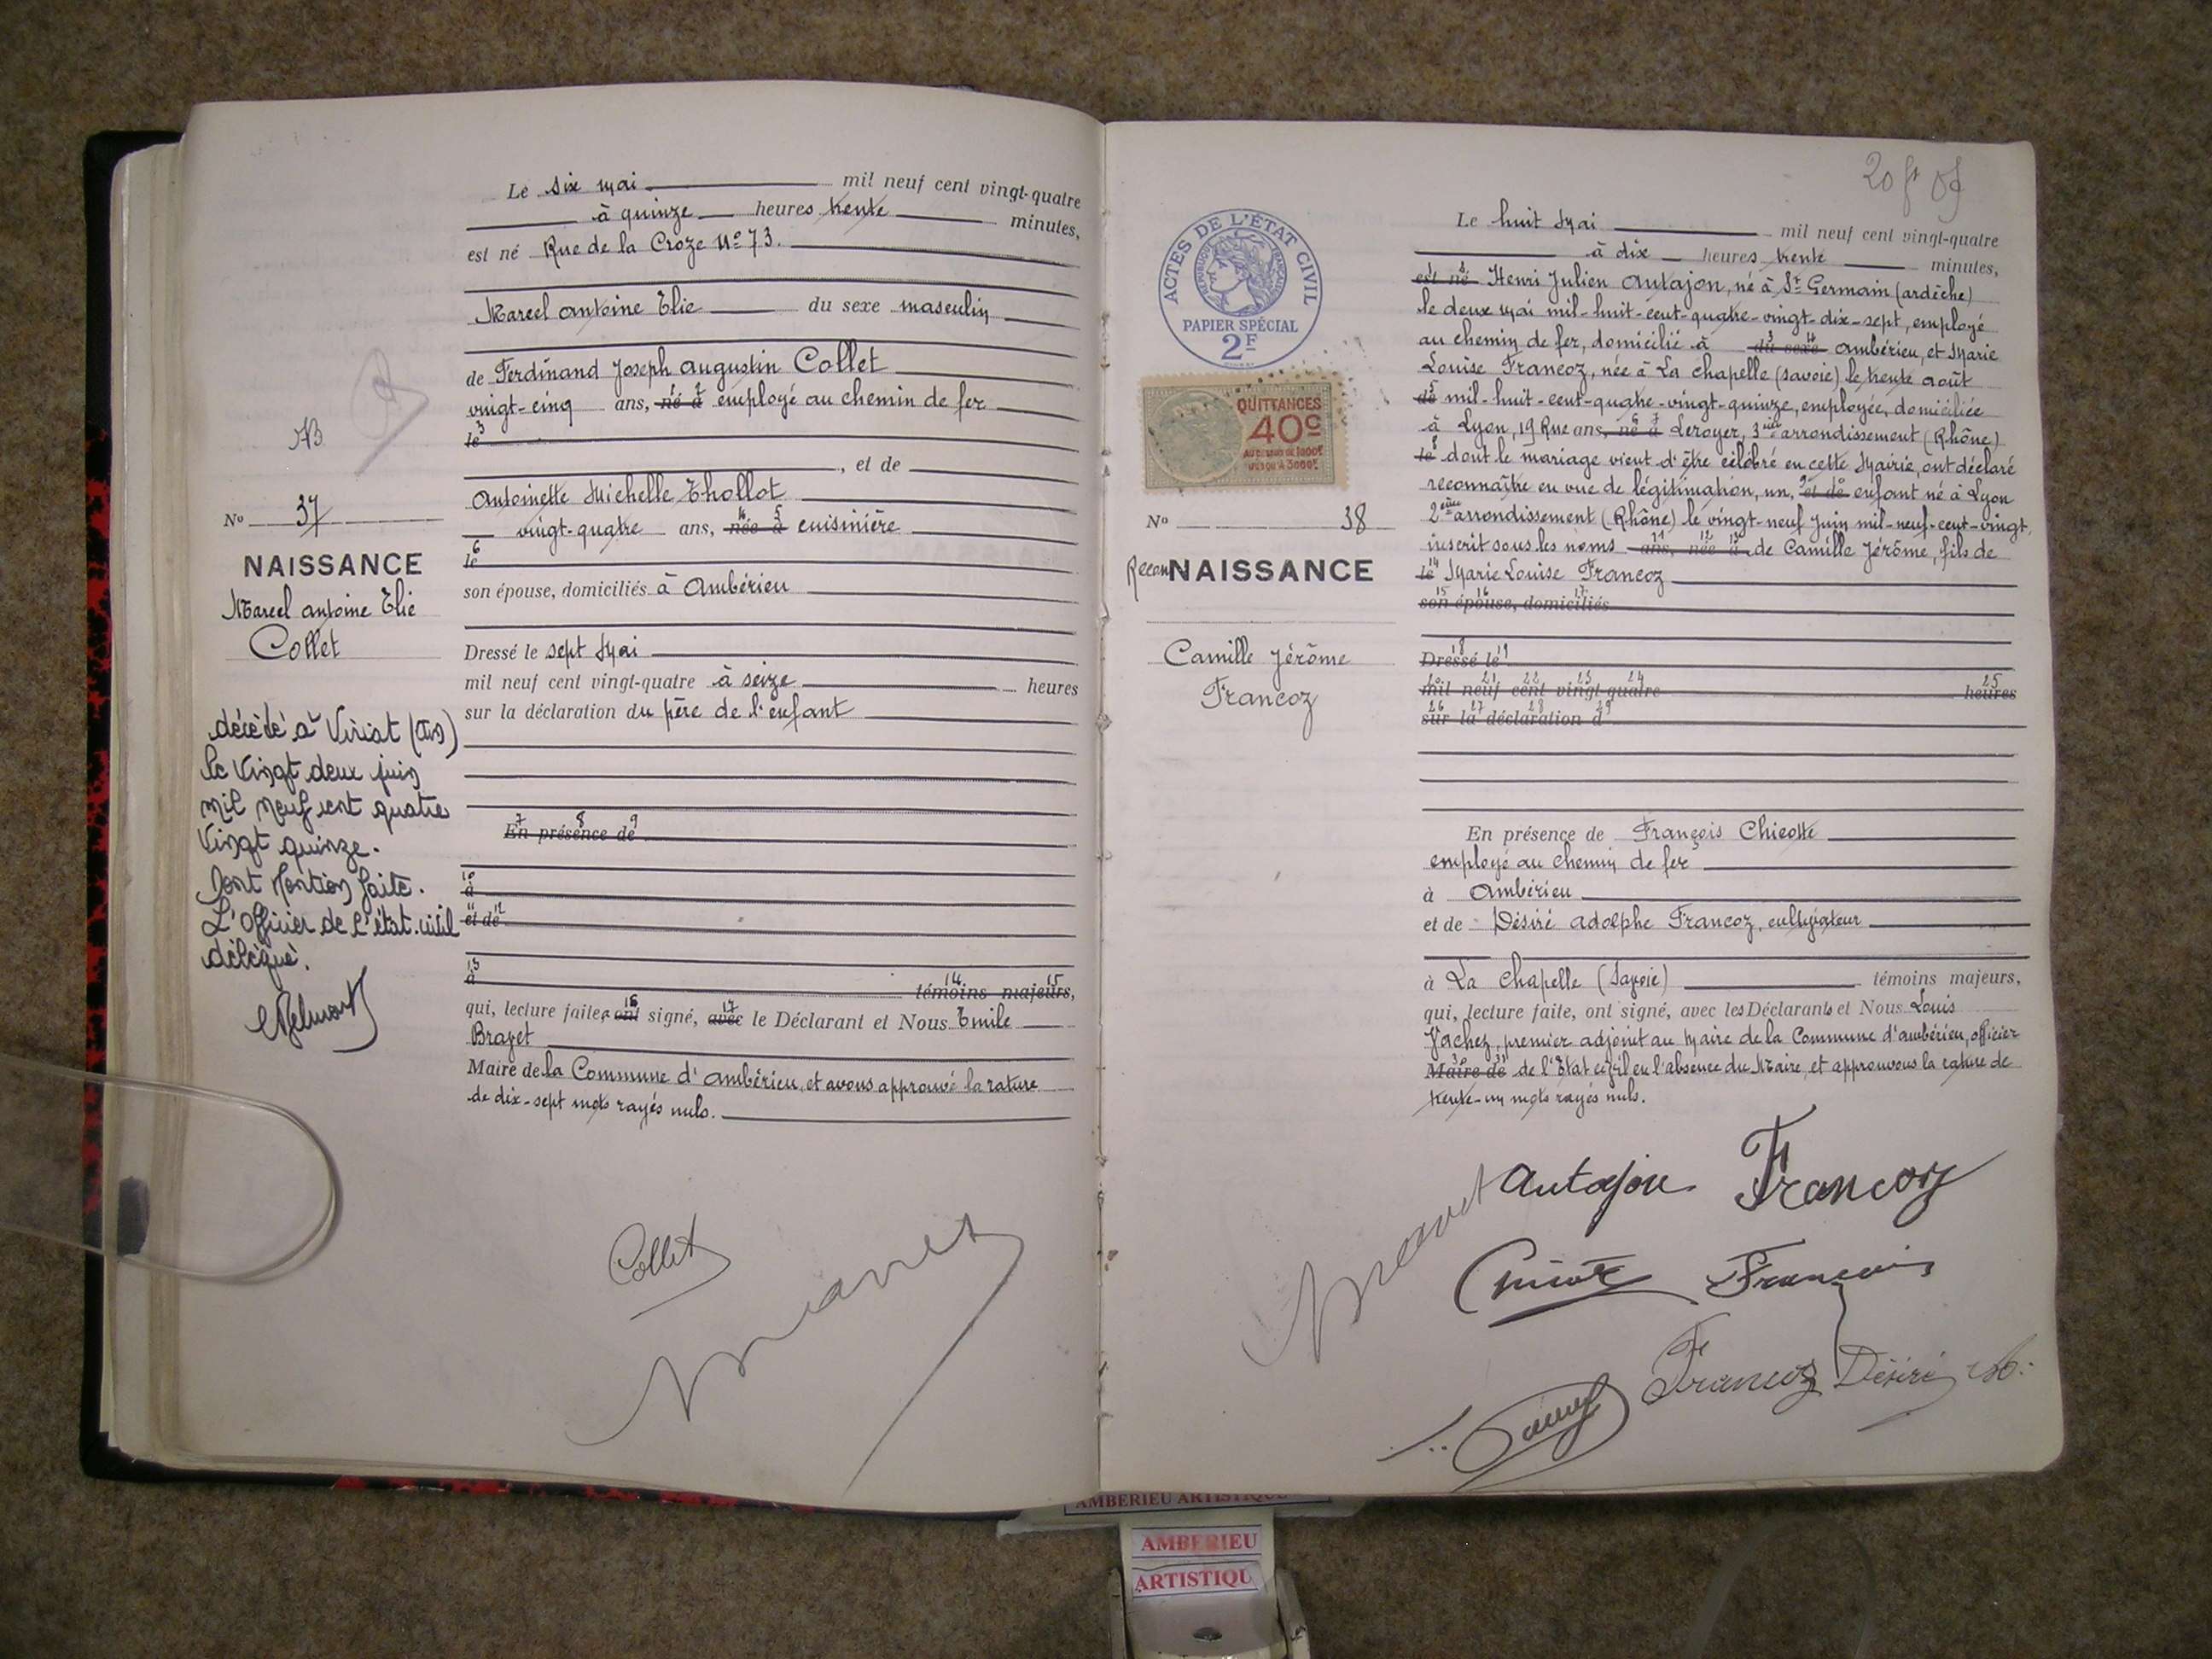 Le six mai mil neuf cent vingt-quatre
à quinze heures trente minutes,
est né Rue de la Croze N° 73.
Marcel Antoine Elie du sexe masculin
de Ferdinand Joseph Augustin Collet
vingt-cinq ans, né à employé au chemin de fer
le
, et de
Antoinette Michelle Thollot
vingt-quatre ans, née à cuisinière
le
son épouse, domiciliés à Ambérieu
Dressé le sept Mai
mil neuf cent vingt-quatre à seize heures
sur la déclaration du père de l'enfant
En présence de
à
et de
à
témoins majeurs,
qui, lecture faite, ont signé, avec le Déclarant et Nous Emile
Bravet
Maire de la Commune d'Ambérieu, et avons approuvé la rature
de dix-sept mots rayés nuls.
N° 37
NAISSANCE
Marcel Antoine Elie
Collet
décédé à Viriat (Ain)
le Vingt deux juin
mil neuf cent quatre
Vingt quinze.
Dont Mention faite.
L'Officier de l'état-civil
délégué.
Collet
Bravet
20 fr 05
ACTES DE L'ÉTAT CIVIL
RÉPUBLIQUE FRANÇAISE
PAPIER SPÉCIAL
2F
QUITTANCES
40c
AU DESSUS DE 1000F
JUSQU'À 3000F
N° 38
ReconNAISSANCE
Camille Jérôme
Francoz
Le huit Mai mil neuf cent vingt-quatre
à dix heures trente minutes,
est né Henri Julien Autajon, né à St Germain (Ardèche)
le deux mai mil-huit-cent-quatre-vingt-dix-sept, employé
au chemin de fer, domicilié à du sexe Ambérieu, et Marie
Louise Francoz, née à La Chapelle (Savoie) le trente août
de mil-huit-cent-quatre-vingt-quinze, employée, domiciliée
à Lyon, 19 Rue ans, né à Leroyer, 3me arrondissement (Rhône)
le dont le mariage vient d'être célébré en cette Mairie, ont déclaré
reconnaître en vue de légitimation, un, et de enfant né à Lyon
2ème arrondissement (Rhône) le vingt-neuf juin mil-neuf-cent-vingt,
inscrit sous les noms ans, née à de Camille Jérôme, fils de
le Marie Louise Francoz
son épouse, domiciliés
Dressé le
mil neuf cent vingt-quatre heures
sur la déclaration d
En présence de François Chicotte
employé au chemin de fer
à Ambérieu
et de Désiré Adolphe Francoz, cultivateur
à La Chapelle (Savoie) témoins majeurs,
qui, lecture faite, ont signé, avec les Déclarants et Nous Louis
Vachez, premier adjoint au Maire de la Commune d'Ambérieu, officier
Maire de de l'Etat civil en l'absence du Maire, et approuvons la rature de
trente-un mots rayés nuls.
Bravet Autajon Francoz
François
Francoz Désiré
AMBERIEU ARTISTIQUE
AMBERIEU
ARTISTIQU